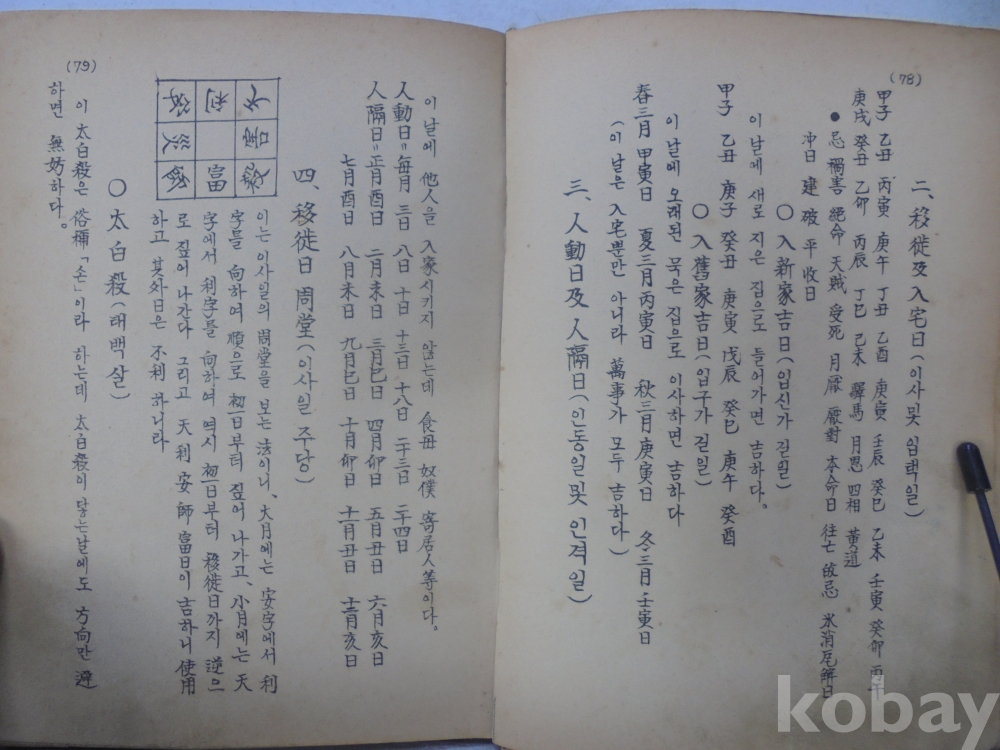 (78)
二、移徙及入宅日(이사및 입택일)
甲子 乙丑 丙寅 庚午 丁丑 乙酉 庚寅 壬辰 癸巳 乙未 壬寅 癸卯 丙午
庚戌 癸丑 乙卯 丙辰 丁巳 己未 驛馬 月恩 四相 黃道
● 忌 禍害 絶命 天賊 受死 月厭 厭對 本命日 往亡 故忌 氷消瓦解日
冲日 建 破 平 收日
○ 入新家吉日(입신가 길일)
이 날에 새로 지은 집으로 들어가면 吉하다。
甲子 乙丑 庚子 癸丑 庚寅 戊辰 癸巳 庚午 癸酉
○ 入舊家吉日(입구가 길일)
이 날에 오래된 묵은 집으로 이사하면 吉하다
春三月 甲寅日 夏三月 丙寅日 秋三月 庚寅日 冬三月 壬寅日
(이 날은 入宅뿐만 아니라 萬事가 모두 吉하다)
三、人動日及 人隔日(인동일및 인격일)
(79)
이 날에 他人을 入家시키지 않는데 食母 奴僕 寄居人等이다。
人動日=每月 三日 八日 十日 十三日 十八日 二十三日 二十四日
人隔日=正月酉日 二月未日 三月巳日 四月卯日 五月丑日 六月亥日
七月酉日 八月未日 九月巳日 十月卯日 十一月丑日 十二月亥日
四、移徙日 周堂(이사일 주당)
天 利 安
害 災
殺 富 師
이는 이사일의 周堂을 보는 法이니、大月에는 安字에서 利
字를 向하여 順으로 初一日부터 짚어 나가고、小月에는 天
字에서 利字를 向하여 역시 初一日부터 移徙日까지 逆으
로 짚어 나간다 그리고 天 利 安 師 富日이 吉하니 使用
하고 其外日은 不利하니라
○ 太白殺(태백살)
이 太白殺은 俗稱「손」이라 하는데 太白殺이 닿는날에도 方向만 避
하면 無妨하다。
kobay